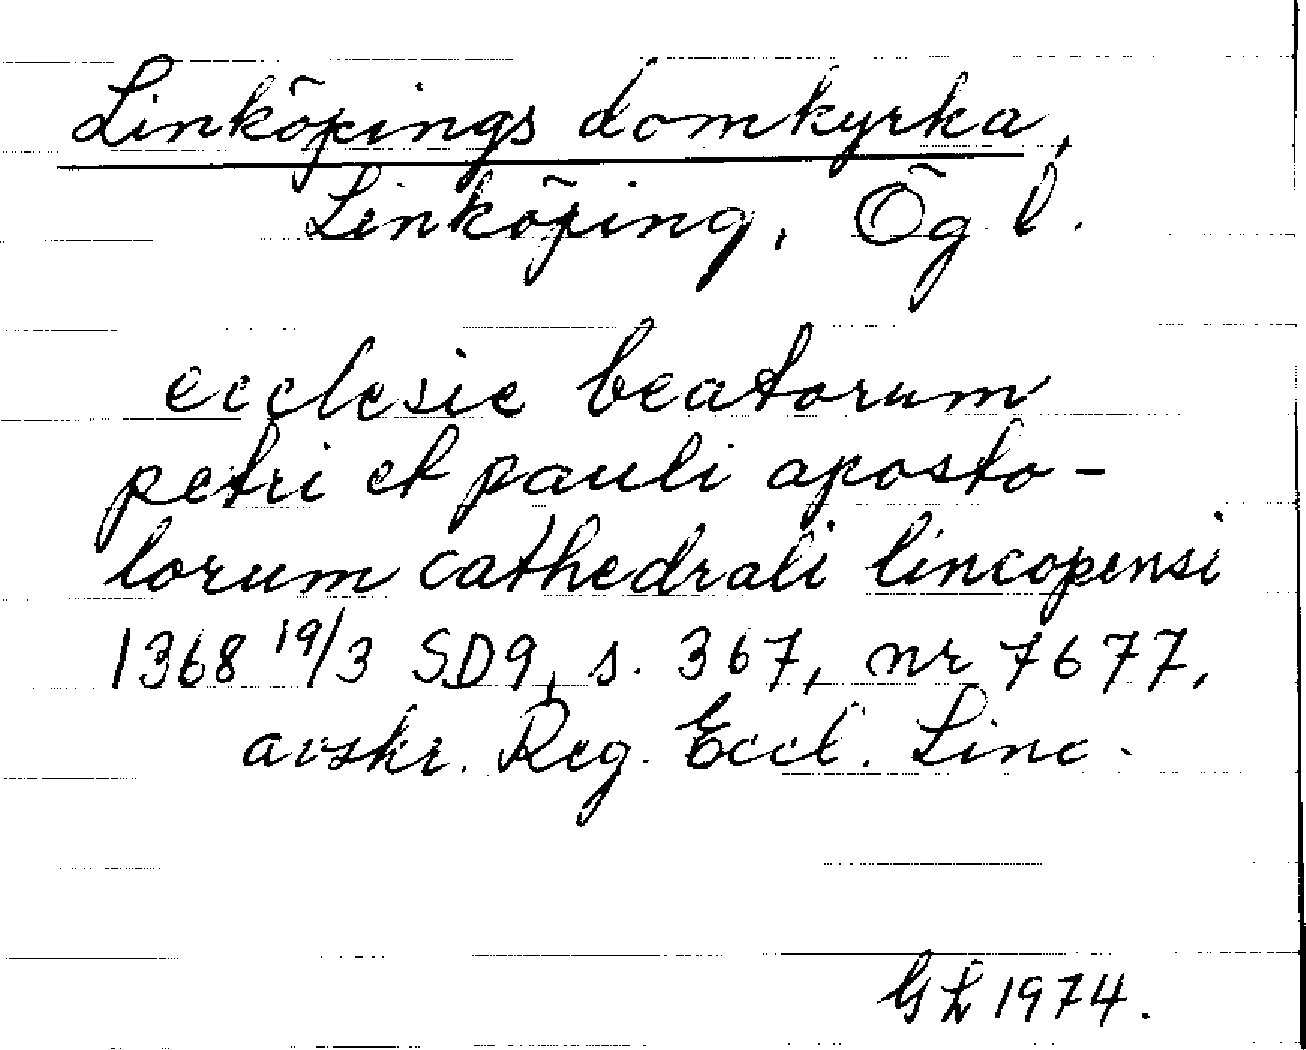 Linköpings domkyrka,
Linköping, Ög l.
ecclesie beatorum
petri et pauli aposto-
lorum cathedrali lincopensi
1368 19/3 SD9, s. 367, nr 7677,
avskr. Reg. Eccl. Linc.
GL 1974.